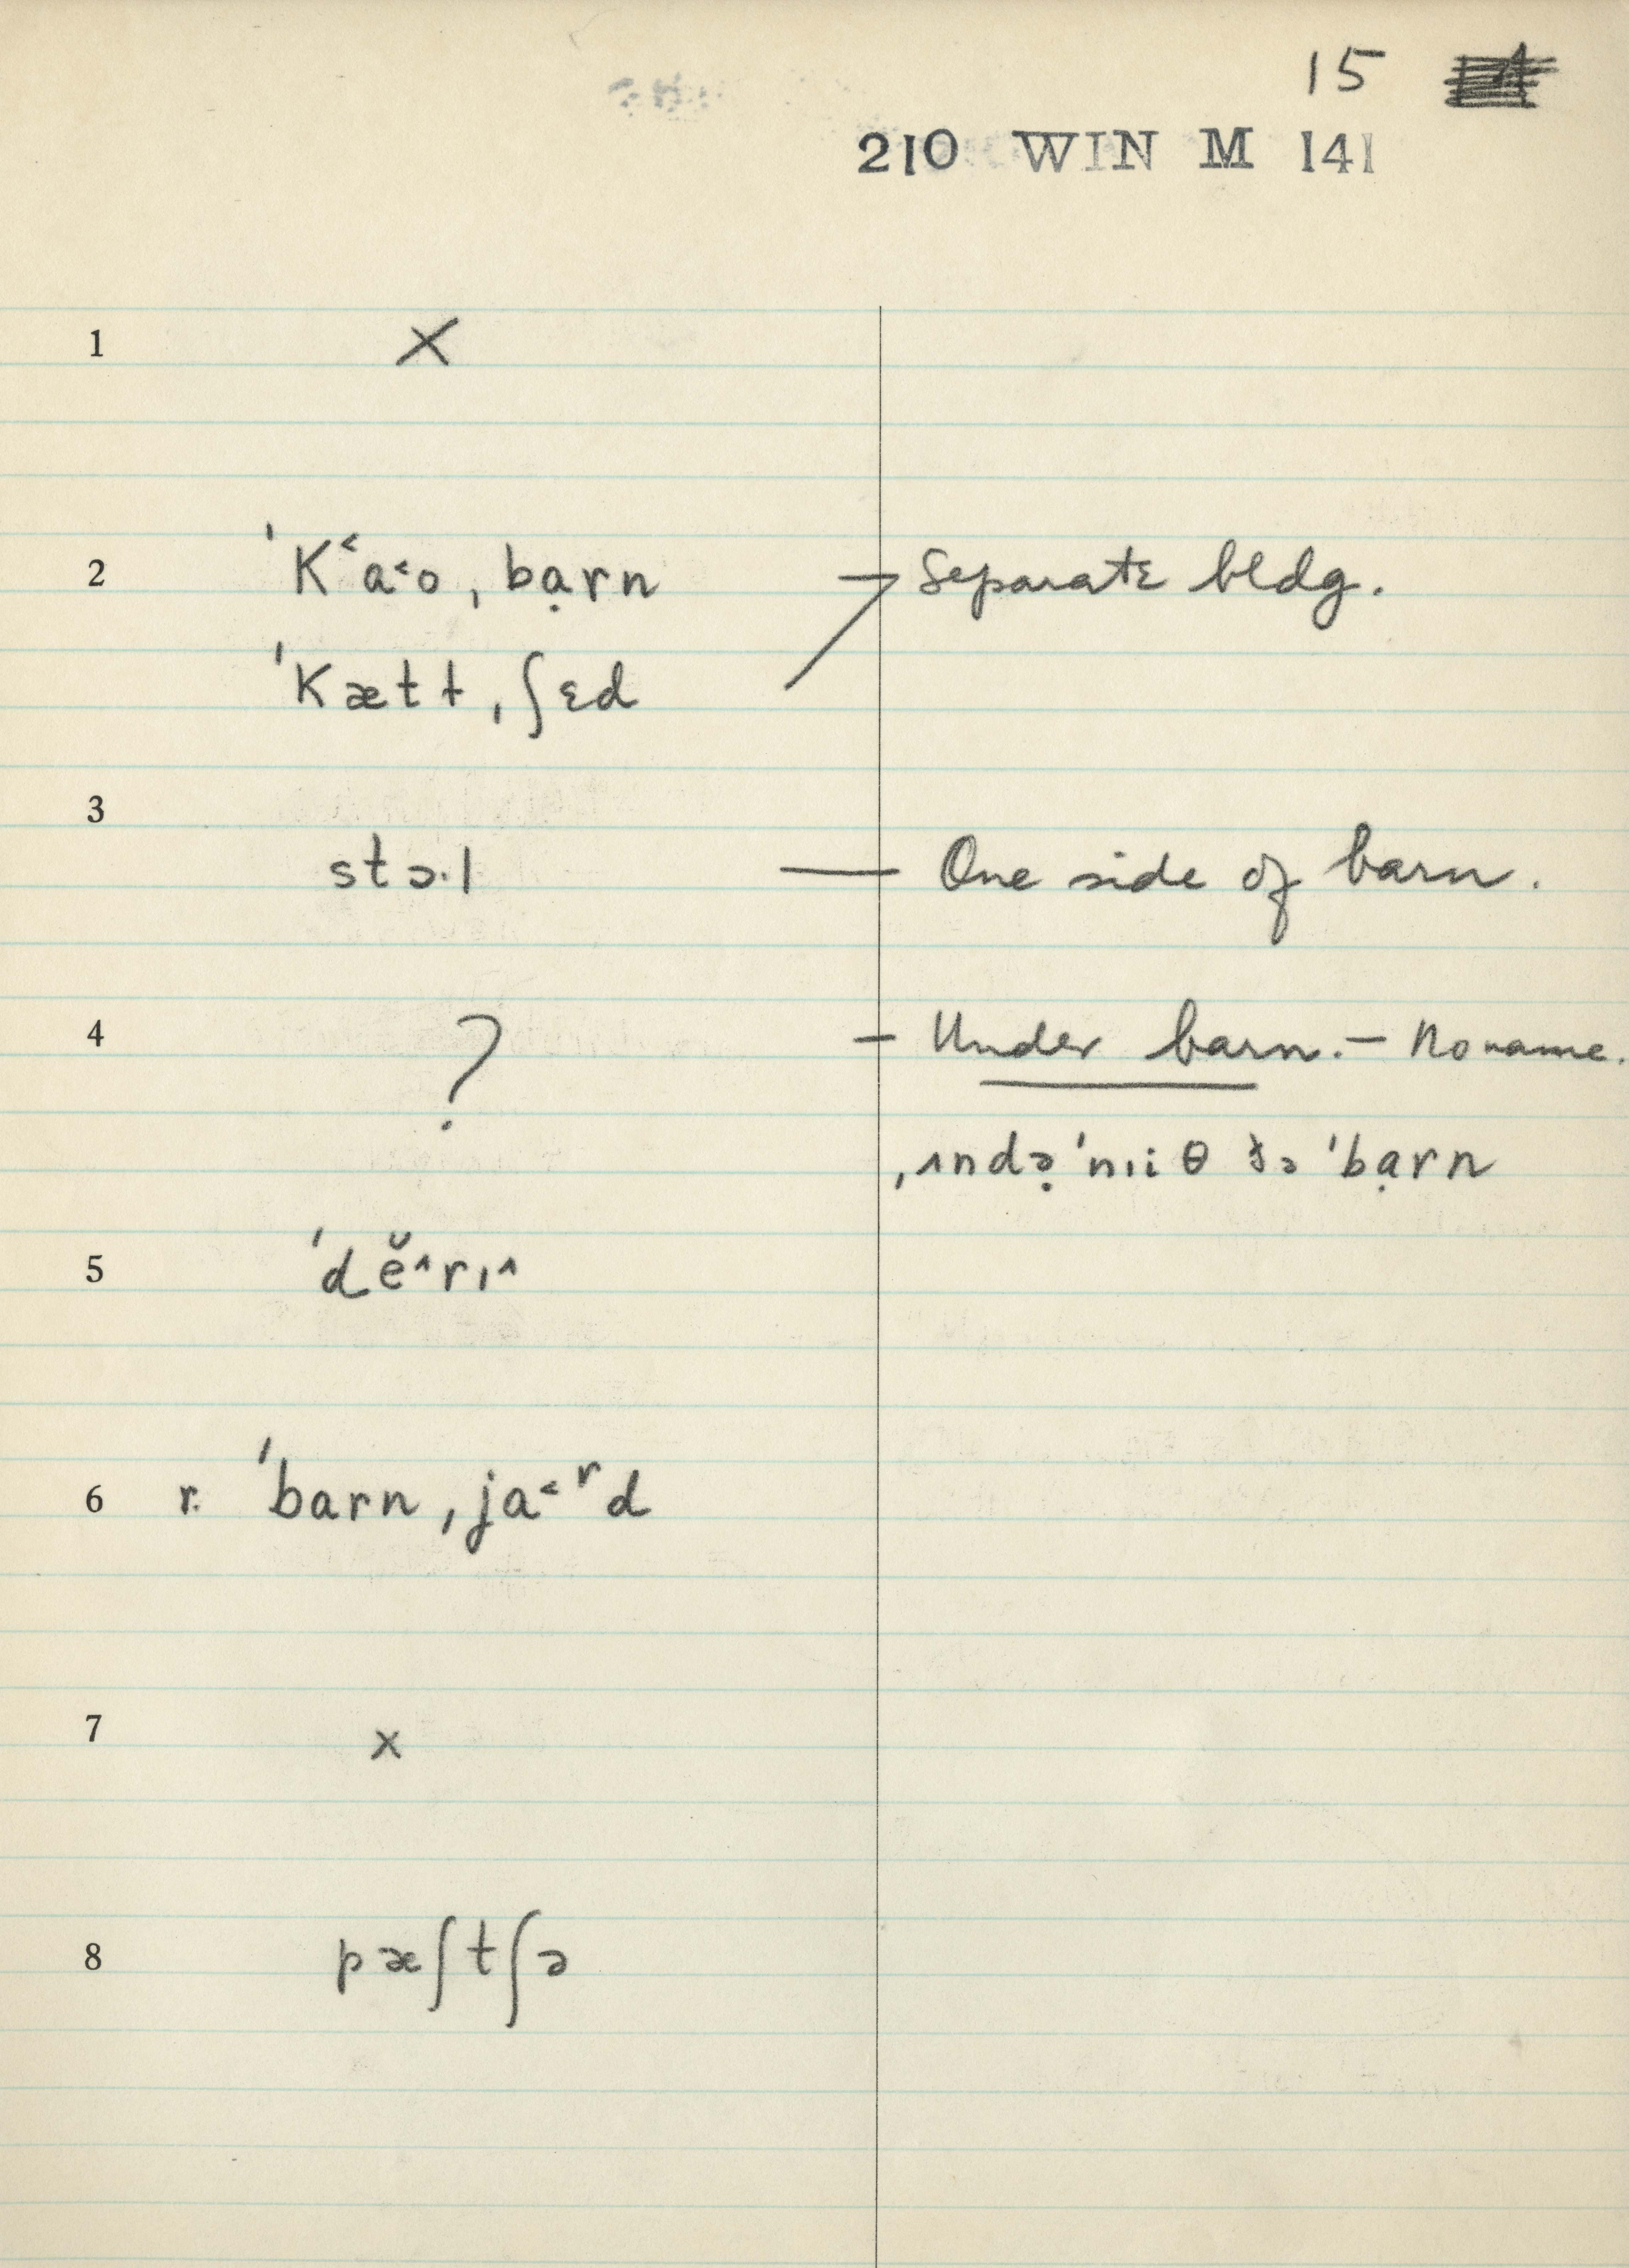 15
210 WIN M 141
1 ×
2 ˈK˂a˂o ˌbạrn → Separate bldg.
ˈKætɫ ˌʃɛd
3
stɔ·l — One side of barn.
4 ? – Under barn. – No name.
ˌʌndə̣ˈnɪiθ ðə ˈbạrn
5 ˈdĕ˄rɪ˄
6 r. ˈbarn ˌja˂ʳd
7 ×
8 pæʃtʃə